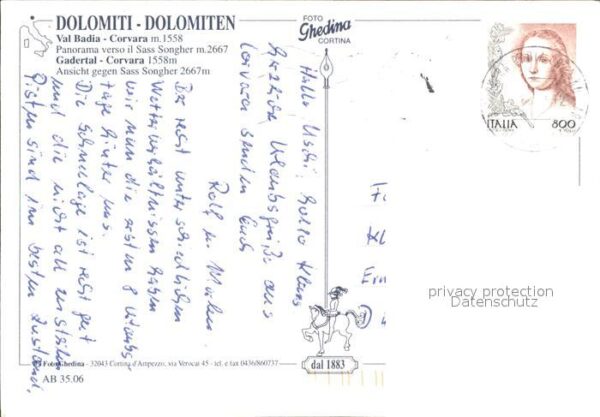 DOLOMITI - DOLOMITEN
Val Badia - Corvara m.1558
Panorama verso il Sass Songher m.2667
Gadertal - Corvara 1558m
Ansicht gegen Sass Songher 2667m
FOTO
Ghedina
CORTINA
ITALIA
800
Hallo Uschi, hallo Klaus
herzliche Urlaubsgrüße aus
Corvara senden Euch
Rolf u.
Bei recht unterschiedlichen
Wetterverhältnissen haben
wir nun die ersten 8 Urlaubs-
tage hinter uns.
Die Schneelage ist recht gut
und die nicht all zu steilen
Pisten sind im besten Zustand,
privacy protection
Datenschutz
dal 1883
FotoGhedina - 32043 Cortina d'Ampezzo, via Verocai 45 - tel. e fax 0436/860737
AB 35.06